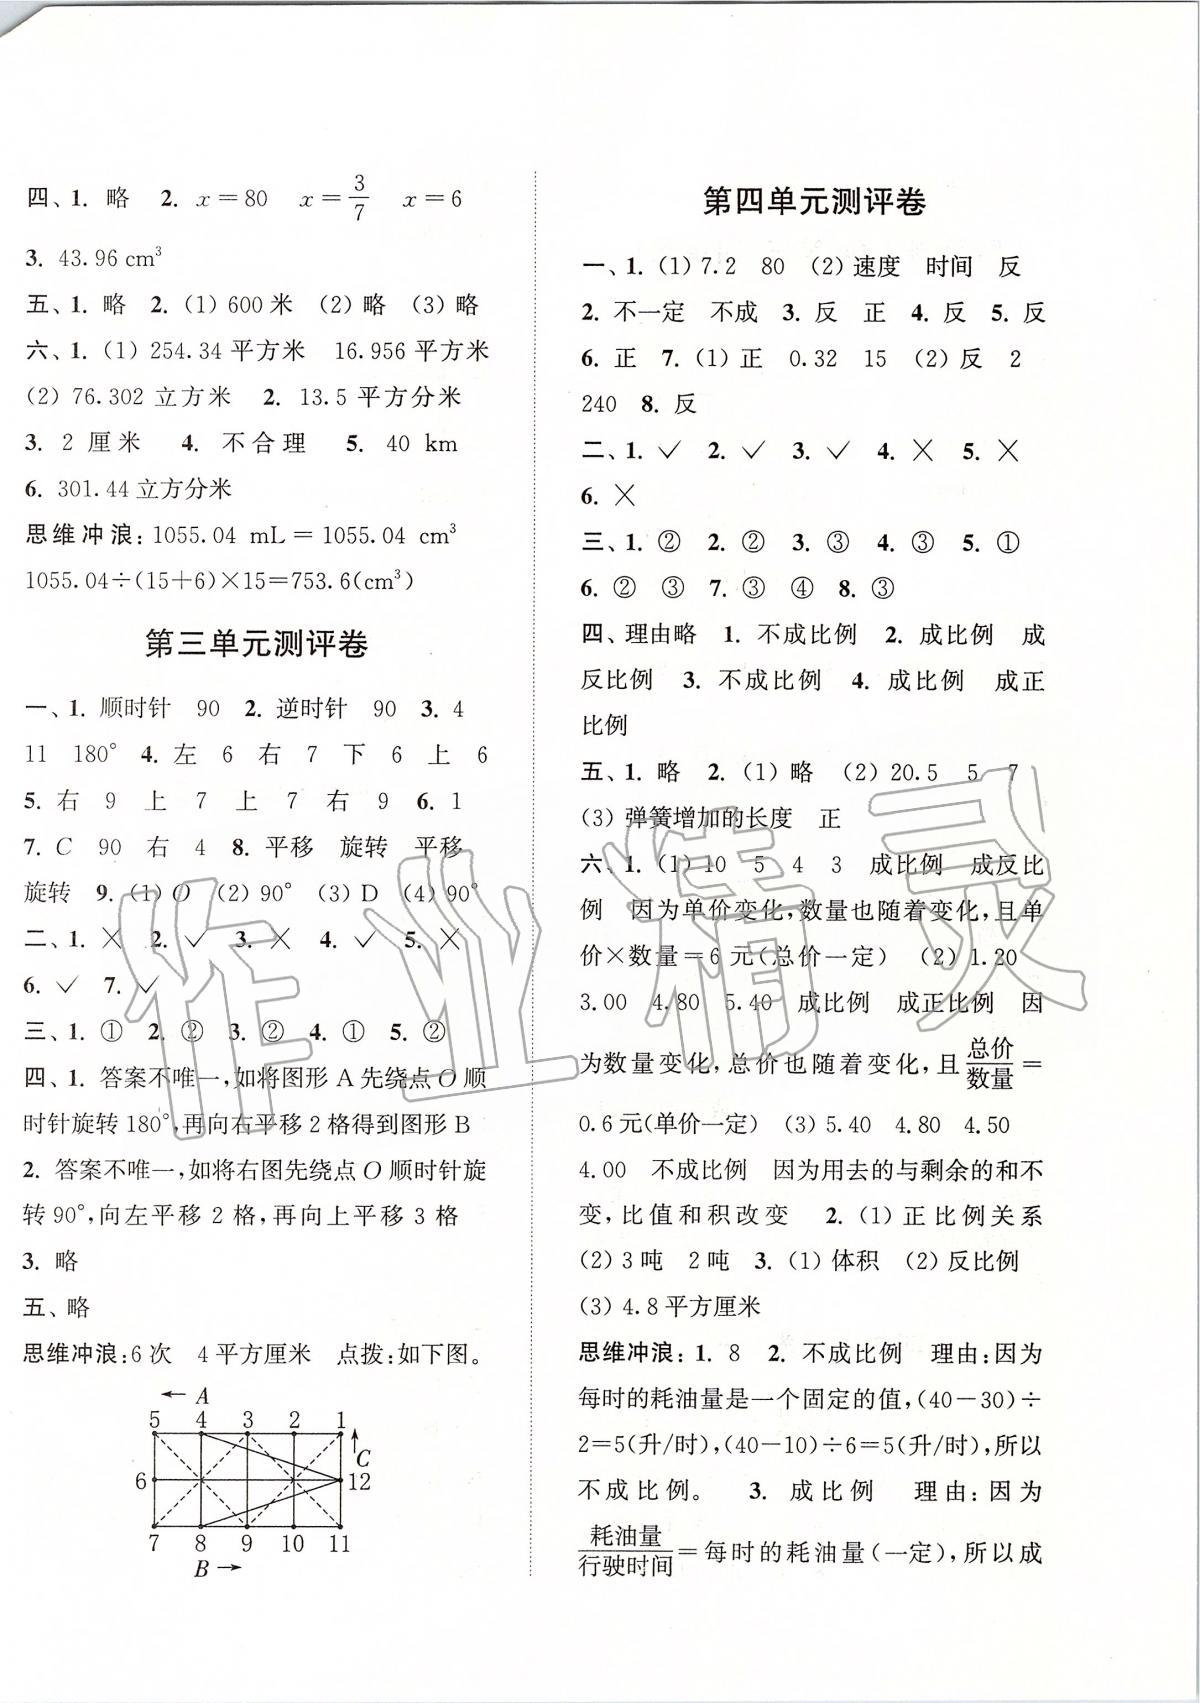 四、1. 略 2. x＝80 x＝3/7 x＝6
3. 43.96 cm³
五、1. 略 2. (1) 600米 (2) 略 (3) 略
六、1. (1) 254.34平方米 16.956平方米
(2) 76.302立方米 2. 13.5平方分米
3. 2厘米 4. 不合理 5. 40 km
6. 301.44立方分米
思维冲浪：1055.04 mL＝1055.04 cm³
1055.04÷(15＋6)×15＝753.6(cm³)
第三单元测评卷
一、1. 顺时针 90 2. 逆时针 90 3. 4
11 180° 4. 左 6 右 7 下 6 上 6
5. 右 9 上 7 上 7 右 9 6. 1
7. C 90 右 4 8. 平移 旋转 平移
旋转 9. (1) O (2) 90° (3) D (4) 90°
二、1. × 2. ✓ 3. × 4. ✓ 5. ×
6. ✓ 7. ✓
三、1. ① 2. ② 3. ② 4. ① 5. ②
四、1. 答案不唯一，如将图形A先绕点O顺
时针旋转180°，再向右平移2格得到图形B
2. 答案不唯一，如将右图先绕点O顺时针旋
转90°，向左平移2格，再向上平移3格
3. 略
五、略
思维冲浪：6次 4平方厘米 点拨：如下图。
← A
5 4 3 2 1
↑ C
6 12
7 8 9 10 11
B →
第四单元测评卷
一、1. (1) 7.2 80 (2) 速度 时间 反
2. 不一定 不成 3. 反 正 4. 反 5. 反
6. 正 7. (1) 正 0.32 15 (2) 反 2
240 8. 反
二、1. ✓ 2. ✓ 3. ✓ 4. × 5. ×
6. ×
三、1. ② 2. ② 3. ③ 4. ③ 5. ①
6. ② ③ 7. ③ ④ 8. ③
四、理由略 1. 不成比例 2. 成比例 成
反比例 3. 不成比例 4. 成比例 成正
比例
五、1. 略 2. (1) 略 (2) 20.5 5 7
(3) 弹簧增加的长度 正
六、1. (1) 10 5 4 3 成比例 成反比
例 因为单价变化，数量也随着变化，且单
价×数量＝6元(总价一定) (2) 1.20
3.00 4.80 5.40 成比例 成正比例 因
为数量变化，总价也随着变化，且总价/数量＝
0.6元(单价一定) (3) 5.40 4.80 4.50
4.00 不成比例 因为用去的与剩余的和不
变，比值和积改变 2. (1) 正比例关系
(2) 3吨 2吨 3. (1) 体积 (2) 反比例
(3) 4.8平方厘米
思维冲浪：1. 8 2. 不成比例 理由：因为
每时的耗油量是一个固定的值，(40－30)÷
2＝5(升/时)，(40－10)÷6＝5(升/时)，所以
不成比例。 3. 成比例 理由：因为
耗油量/行驶时间＝每时的耗油量(一定)，所以成
作业精灵